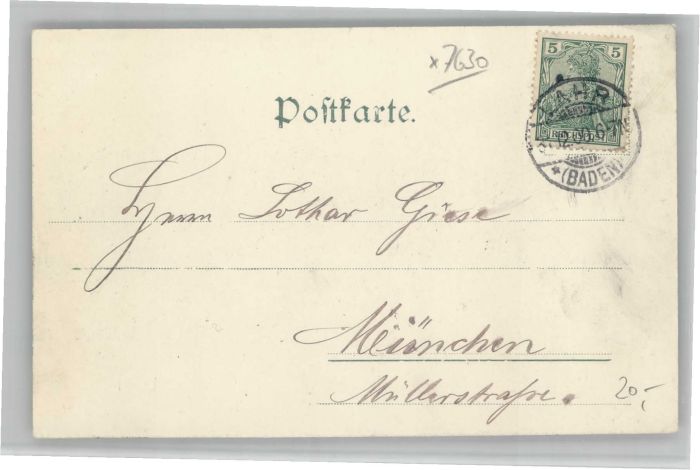 x7630
5 5
REICHSPOST
LAHR
(BADEN)
Postkarte.
Herrn Lothar Giese
München
Müllerstraße.
20,-